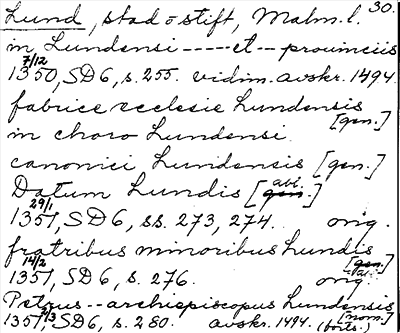 Lund, stad o stift, Malm. l. 30.
in Lundensi ----- et -- prouinciis
7/12
1350, SD 6, s. 255. vidim. avskr. 1494.
fabrice ecclesie Lundensis
[gen.]
in choro Lundensi
canonici Lundensis [gen.]
Datum Lundis [gen. abl.]
29/1
1351, SD 6, ss. 273, 274. orig.
fratribus minoribus Lundis
[gen.] abl.
14/2
1351, SD 6, s. 276. orig.
Petrus -- archiepiscopus Lundensis
[nom.]
1351, 7/3 SD 6, s. 280. avskr. 1494.